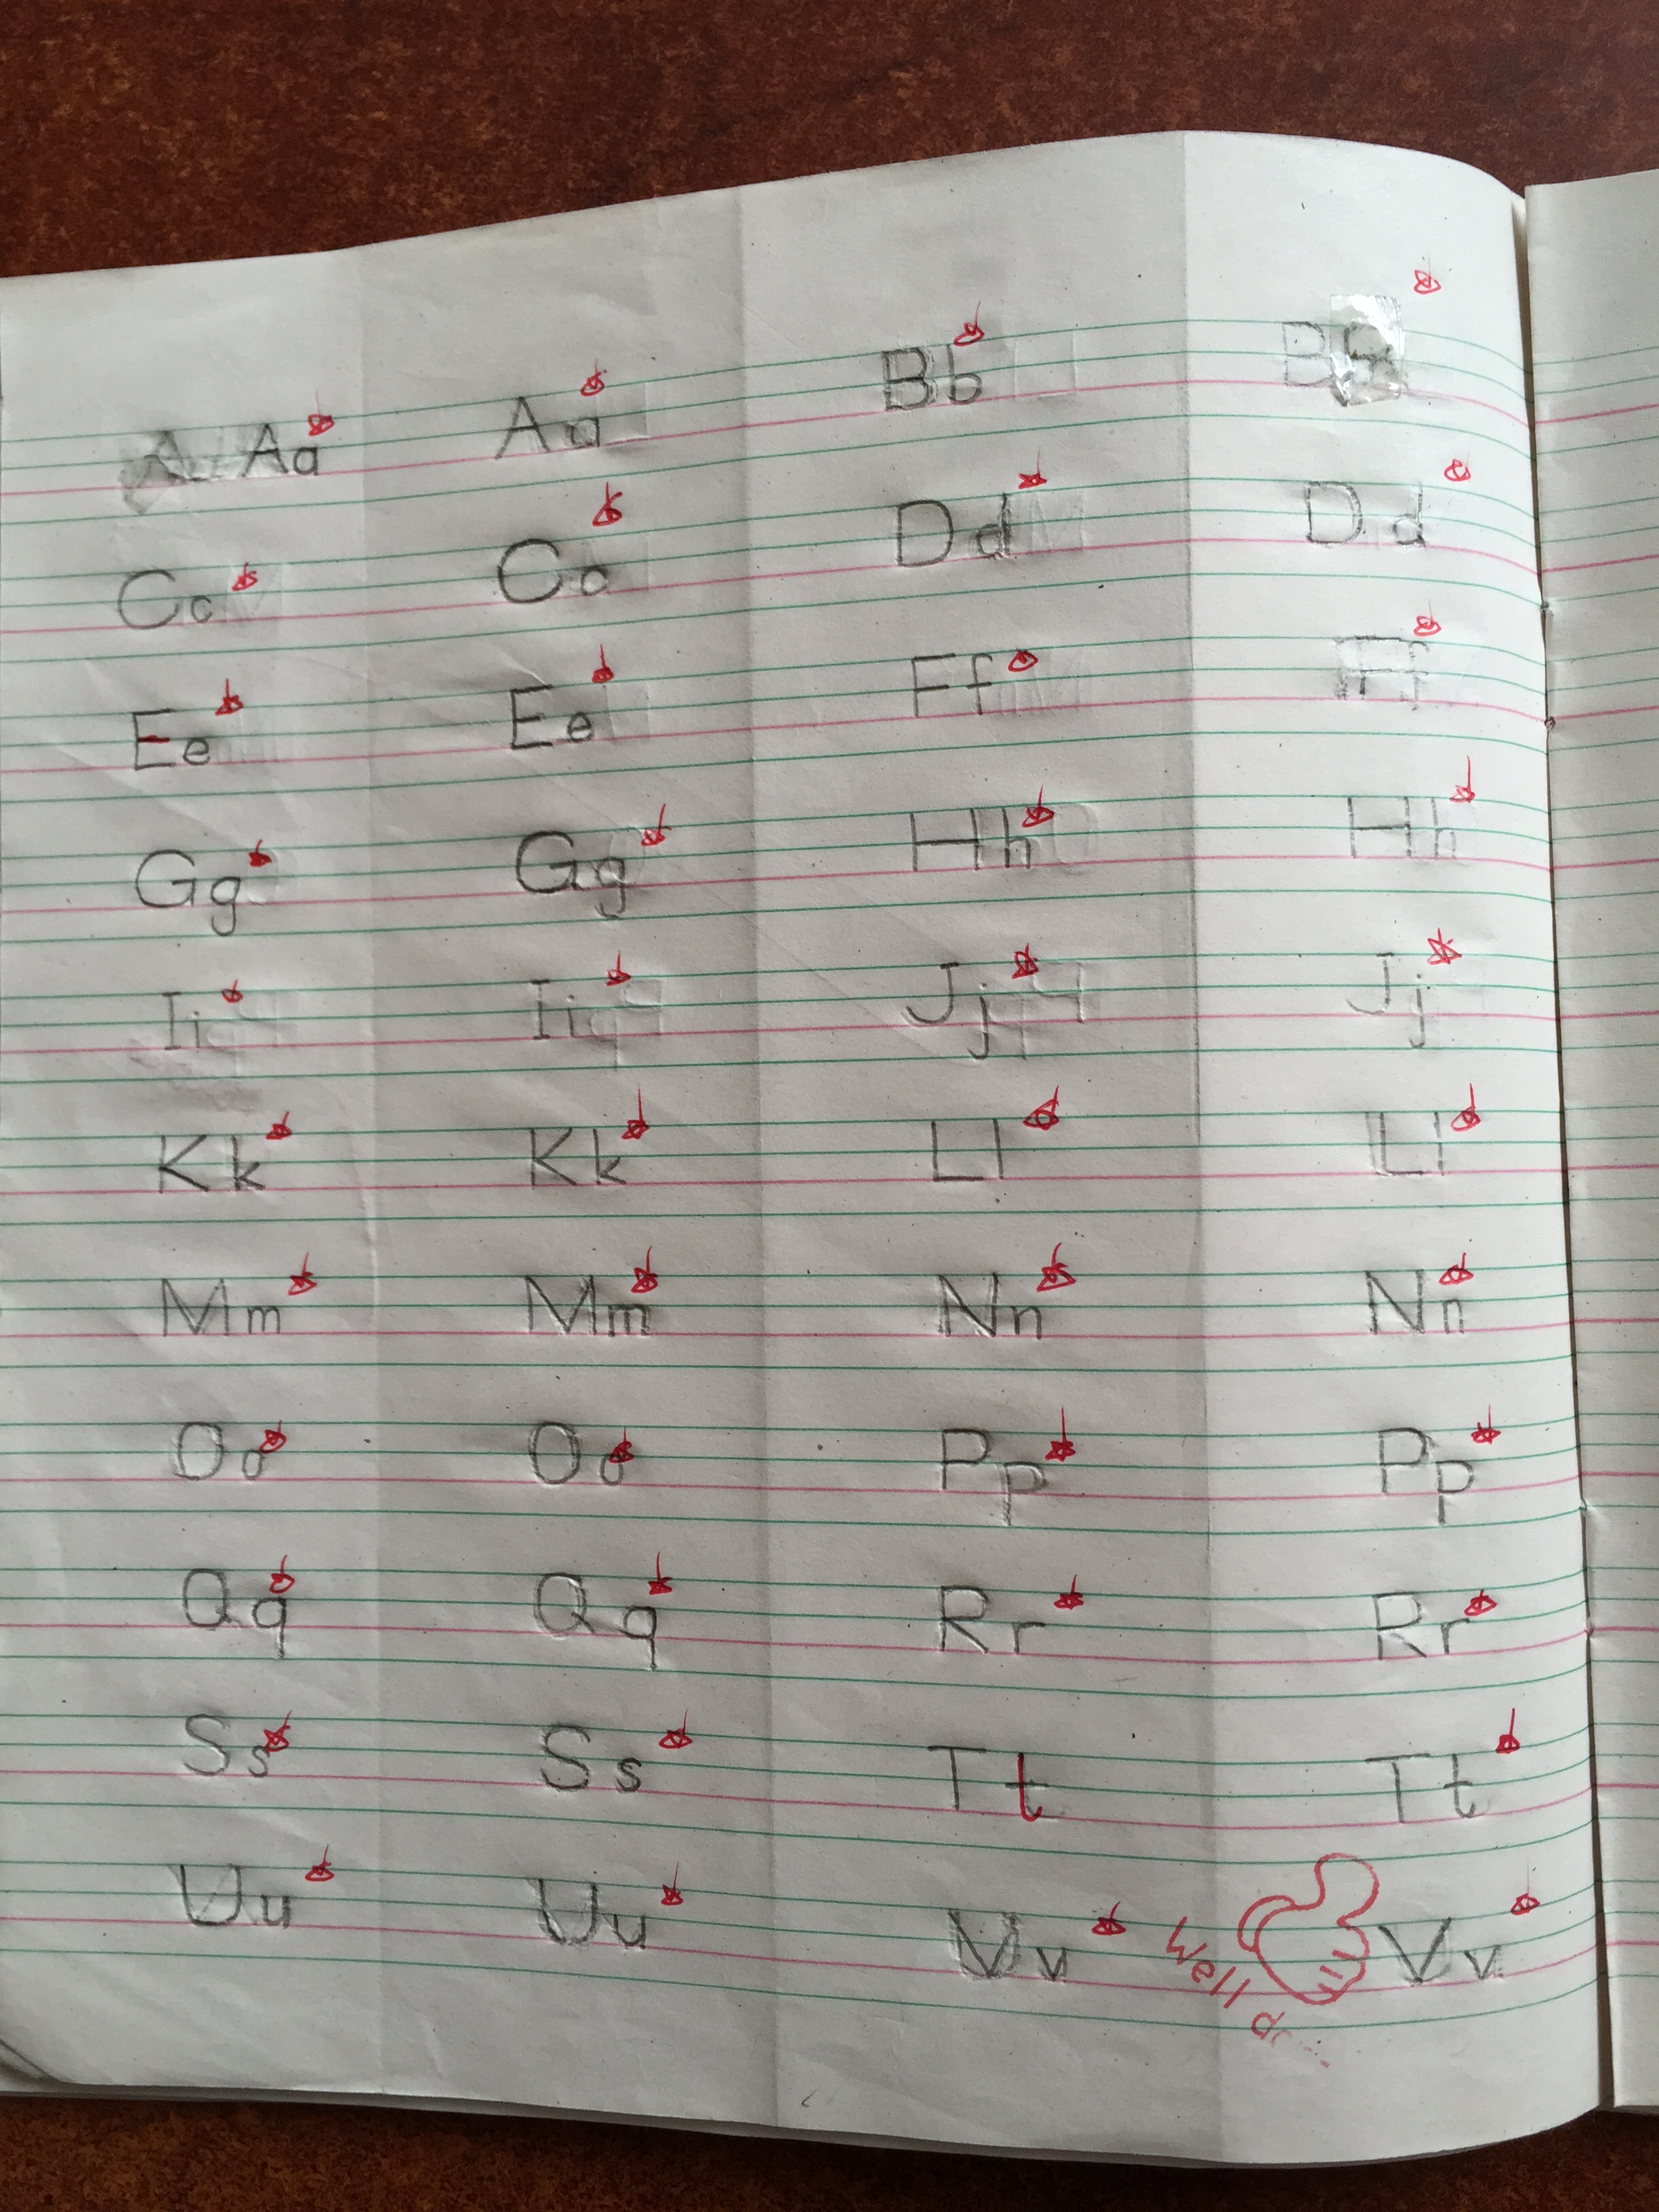 Aa Aa Bb B
Cc Cc Dd Dd
Ee Ee Ff Ff
Gg Gg Hh Hh
Ii Ii Jj Jj
Kk Kk Ll Ll
Mm Mm Nn Nn
Oo Oo Pp Pp
Qq Qq Rr Rr
Ss Ss Tt Tt
Uu Uu Vv Vv
Well